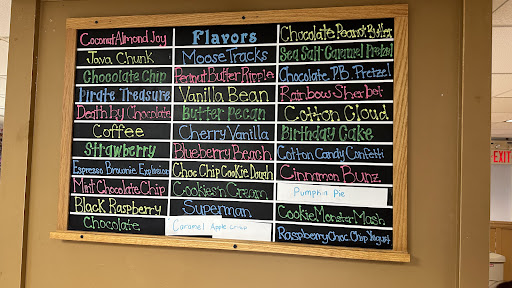 Coconut Almond Joy
Java Chunk
Chocolate Chip
Pirate Treasure
Death by Chocolate
Coffee
Strawberry
Espresso Brownie Explosion
Mint Chocolate Chip
Black Raspberry
Chocolate
Flavors
Moose Tracks
Peanut Butter Ripple
Vanilla Bean
Butter Pecan
Cherry Vanilla
Blueberry Beach
Choc Chip Cookie Dough
Cookies n Cream
Superman
Caramel Apple Crisp
Chocolate Peanut Butter
Sea Salt Caramel Pretzel
Chocolate P.B. Pretzel
Rainbow Sherbet
Cotton Cloud
Birthday Cake
Cotton Candy Confetti
Cinnamon Bunz
Pumpkin Pie
Cookie Monster Mash
Raspberry Choc. Chip Yogurt
EXIT